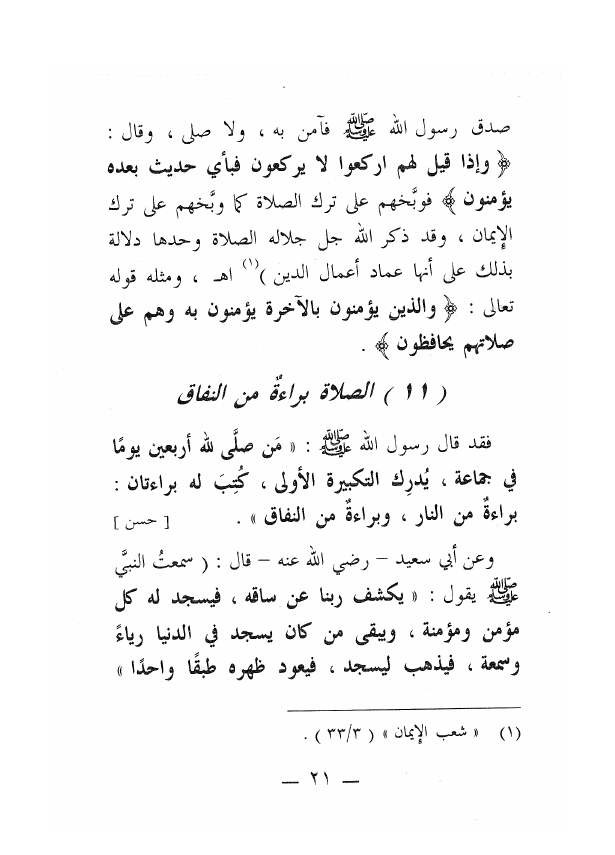 صدق رسول الله ﷺ فآمن به ، ولا صلى ، وقال :
﴿ وإذا قيل لهم اركعوا لا يركعون فبأي حديث بعده
يؤمنون ﴾ فوبَّخهم على ترك الصلاة كما وبَّخهم على ترك
الإيمان ، وقد ذكر الله جل جلاله الصلاة وحدها دلالة
بذلك على أنها عماد أعمال الدين )(١) اهـ ، ومثله قوله
تعالى : ﴿ والذين يؤمنون بالآخرة يؤمنون به وهم على
صلاتهم يحافظون ﴾ .
( ١١ ) الصلاة براءةٌ من النفاق
فقد قال رسول الله ﷺ : « مَن صلَّى لله أربعين يومًا
في جماعة ، يُدرِك التكبيرة الأولى ، كُتِبَ له براءتان :
براءةٌ من النار ، وبراءةٌ من النفاق » . [ حسن ]
وعن أبي سعيد – رضي الله عنه – قال : ( سمعتُ النبيَّ
ﷺ يقول : « يكشف ربنا عن ساقه ، فيسجد له كل
مؤمن ومؤمنة ، ويبقى من كان يسجد في الدنيا رياءً
وسمعة ، فيذهب ليسجد ، فيعود ظهره طبقًا واحدًا »
(١) « شعب الإيمان » ( ٣٣/٣ ) .
— ٢١ —